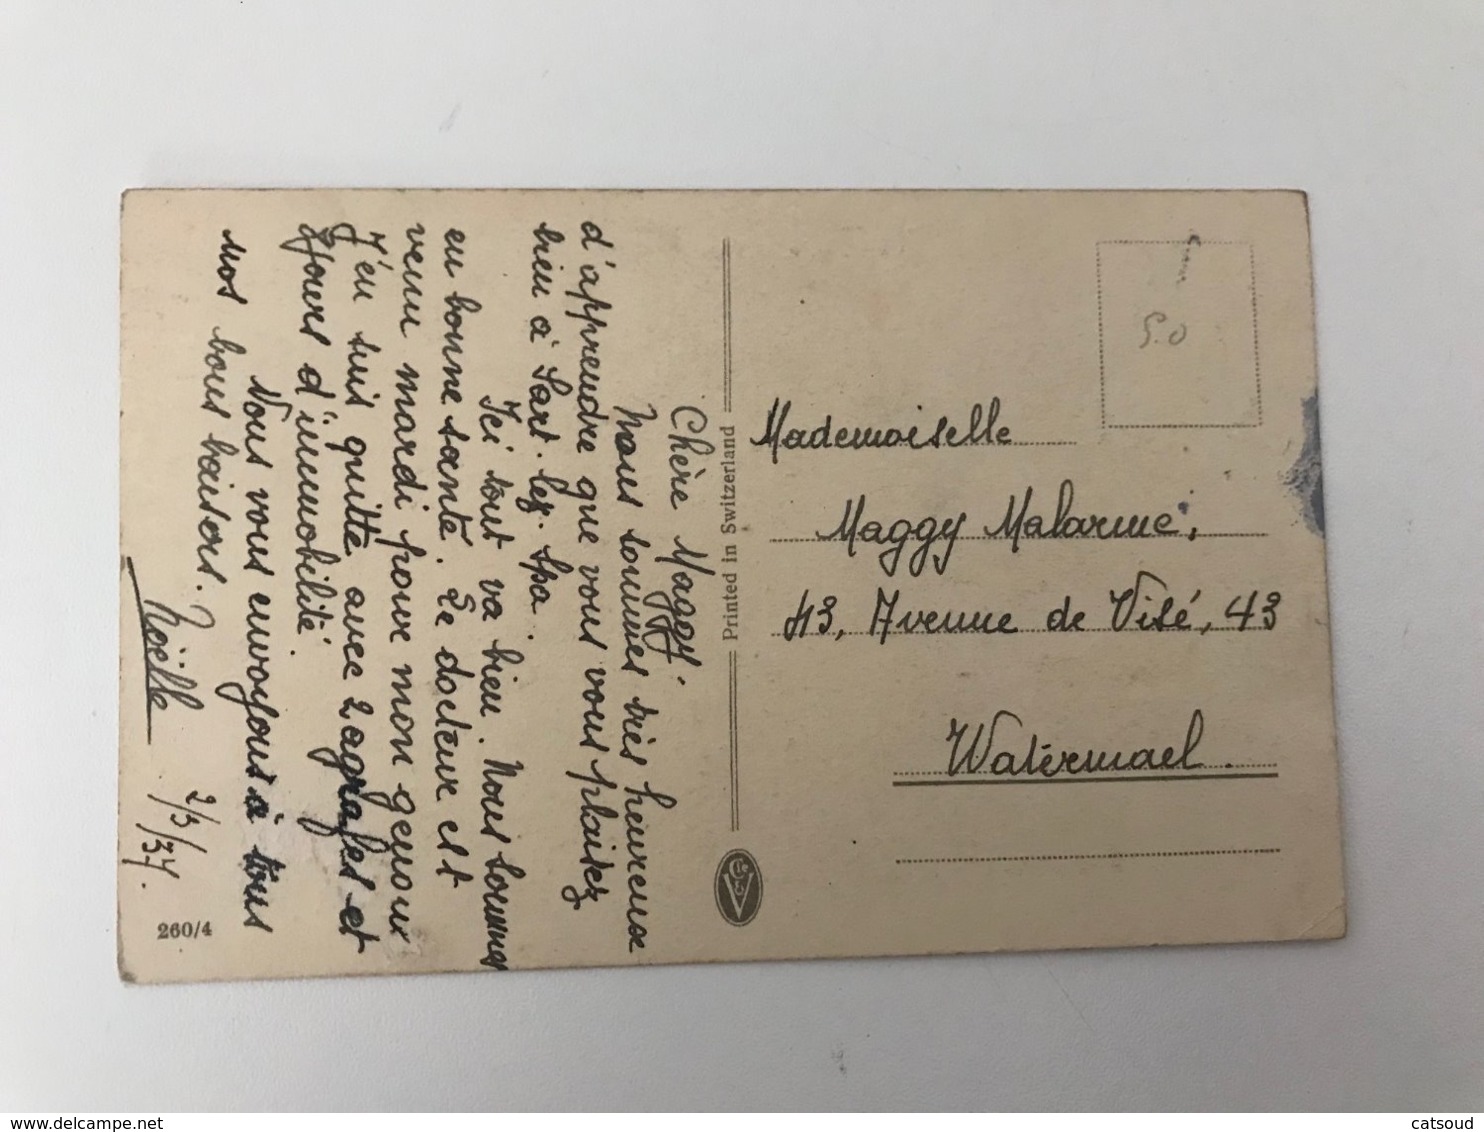 Chère Maggy,
Nous sommes très heureux
d'apprendre que vous vous plaisez
bien à Sart-lez-Spa.
Ici tout va bien. Nous sommes
en bonne santé. Le docteur est
venu mardi pour mon genou
J'en suis quitte avec 2 agrafes et
jours d'immobilité.
Nous vous envoyons à tous
nos bons baisers.
Noëlle
2/3/37.
260/4
Printed in Switzerland
Cie
&
V
5.0
Mademoiselle
Maggy Malarme,
43, Avenue de Visé, 43
Watermael.
delcampe.net
catsoud